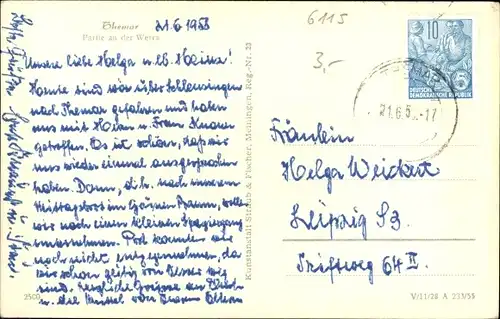 Themar
Partie an der Werra
21.6.1958
6115
3,-
Unsere liebe Helga u. lb. Heinz!
Heute sind wir über Schleusingen
nach Themar gefahren und haben
uns mit Herrn u. Frau Knauer
getroffen. Es ist schön, daß wir
uns wieder einmal aussprechen
haben. Dann, d. h. nach unserem
Mittagbrot im Grünen Baum, wollen
wir noch einen kleinen Spaziergang
unternehmen. Post konnten wir
noch nicht entgegennehmen, da
wir schon zeitig von Hause weg
sind. Herzliche Grüsse an Euch
u. die Mussel oder Deinen Eltern
Kunstanstalt Straub & Fischer, Meiningen, Reg.-Nr. 23
10
DEUTSCHE
DEMOKRATISCHE REPUBLIK
21.6.5 -17
Fräulein
Helga Weickert
Leipzig S3
Triftweg 64 II
2500
V/11/28 A 223/58